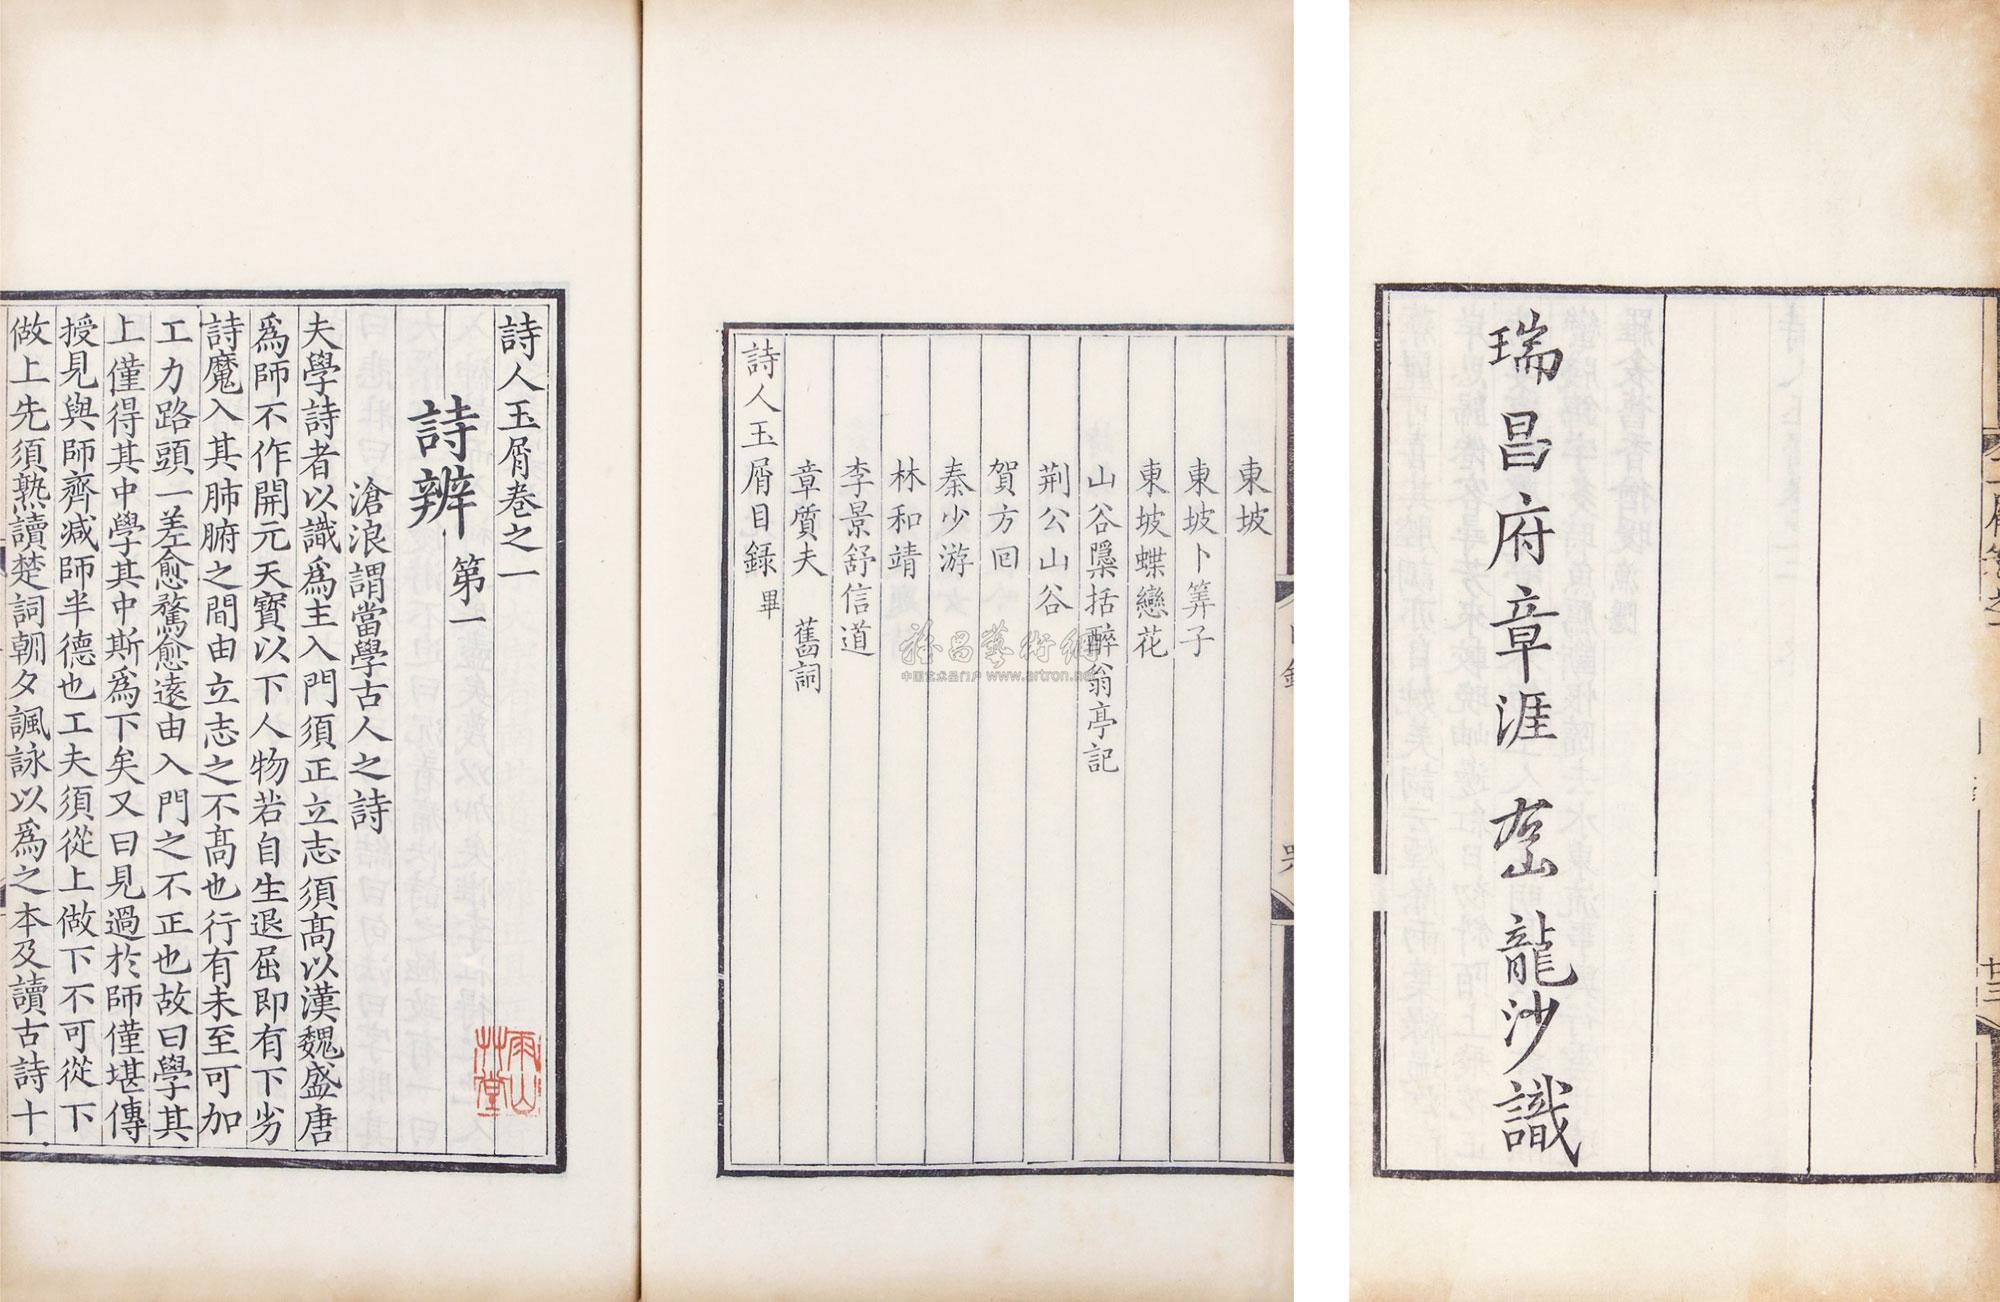 瑞昌府章涯
龍沙識
東坡
東坡卜筭子
東坡蝶戀花
山谷隱括醉翁亭記
荆公山谷
賀方回
秦少游
林和靖
李景舒信道
章質夫 舊詞
詩人玉屑目録畢
詩人玉屑卷之一
詩辨第一
滄浪謂當學古人之詩
夫學詩者以識爲主入門須正立志須髙以漢魏盛唐
爲師不作開元天寳以下人物若自生退屈即有下劣
詩魔入其肺腑之間由立志之不髙也行有未至可加
工力路頭一差愈騖愈遠由入門之不正也故曰學其
上僅得其中學其中斯爲下矣又曰見過於師僅堪傳
授見與師齊减師半德也工夫須從上做下不可從下
做上先須熟讀楚詞朝夕諷詠以爲之本及讀古詩十
雨山艸堂
雅昌藝術網
中国艺术品门户 www.artron.net